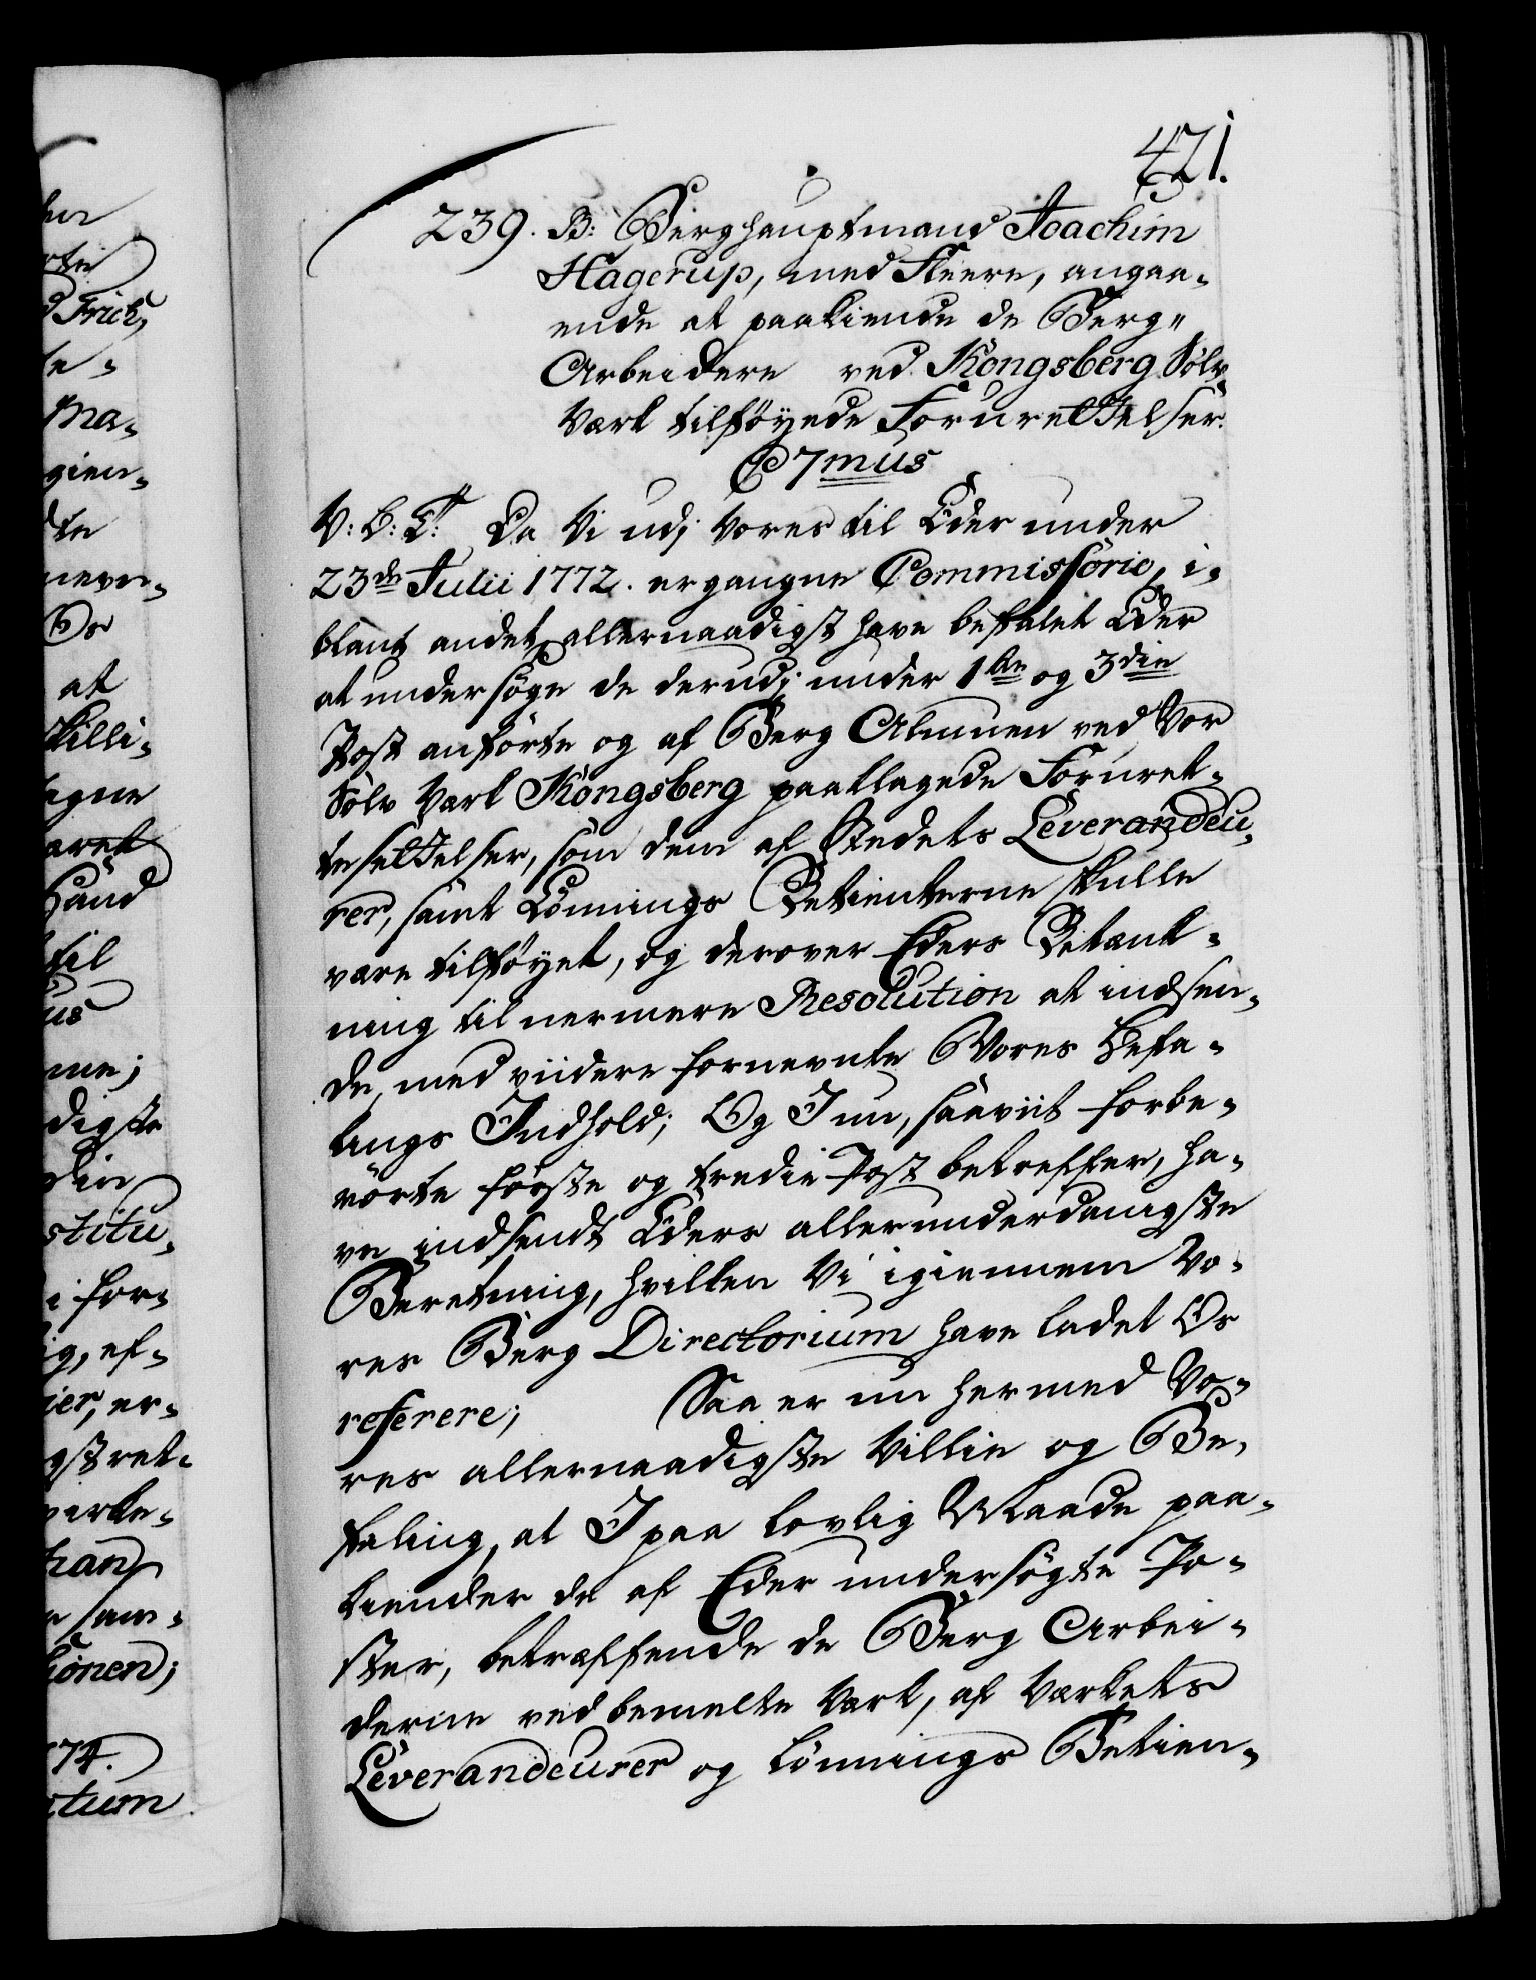 471.
239. B: Berghauptmand Joachim
Hagerup, med Fleere, angaa-
ende at paakiende de Berg-
Arbeidere ved Kongsberg Sølv-
Værk tilføyede Forurettelser.
C 7mus
V: G: T: Da Vi udj Vores til Eder under
23de Julii 1772. ergangne Commissorie, i-
blant andet, allernaadigst have befalet Eder
at undersøge de derudj under 1ste og 3die
Post anførte og af Berg Almuen ved Vor
Sølv Værk Kongsberg paaklagede Foruret-
tesettelser, som dem af Stedets Leverandeu-
rer, samt Lønnings Betienterne skulle
være tilføyet, og derover Eders Betænk-
ning til nermere Resolution at indsen-
de, med viidere fornevnte Vores Befa-
lings Indhold; Og I nu, saaviit forbe-
rørte første og tredie Post betreffer, ha-
ve indsendt Eders allerunderdanigste
Beretning, hvilken Vi igiennem Vo-
res Berg Directorium have ladet Os
referere; Saa er nu hermed Vo-
res allernaadigste Villie og Be-
faling, at I paa lovlig Maade paa-
kiender de af Eder undersøgte Po-
ster, betræffende de Berg Arbei-
derne ved bemelte Værk, af Værkets
Leverandeurer og Lønnings Betien-